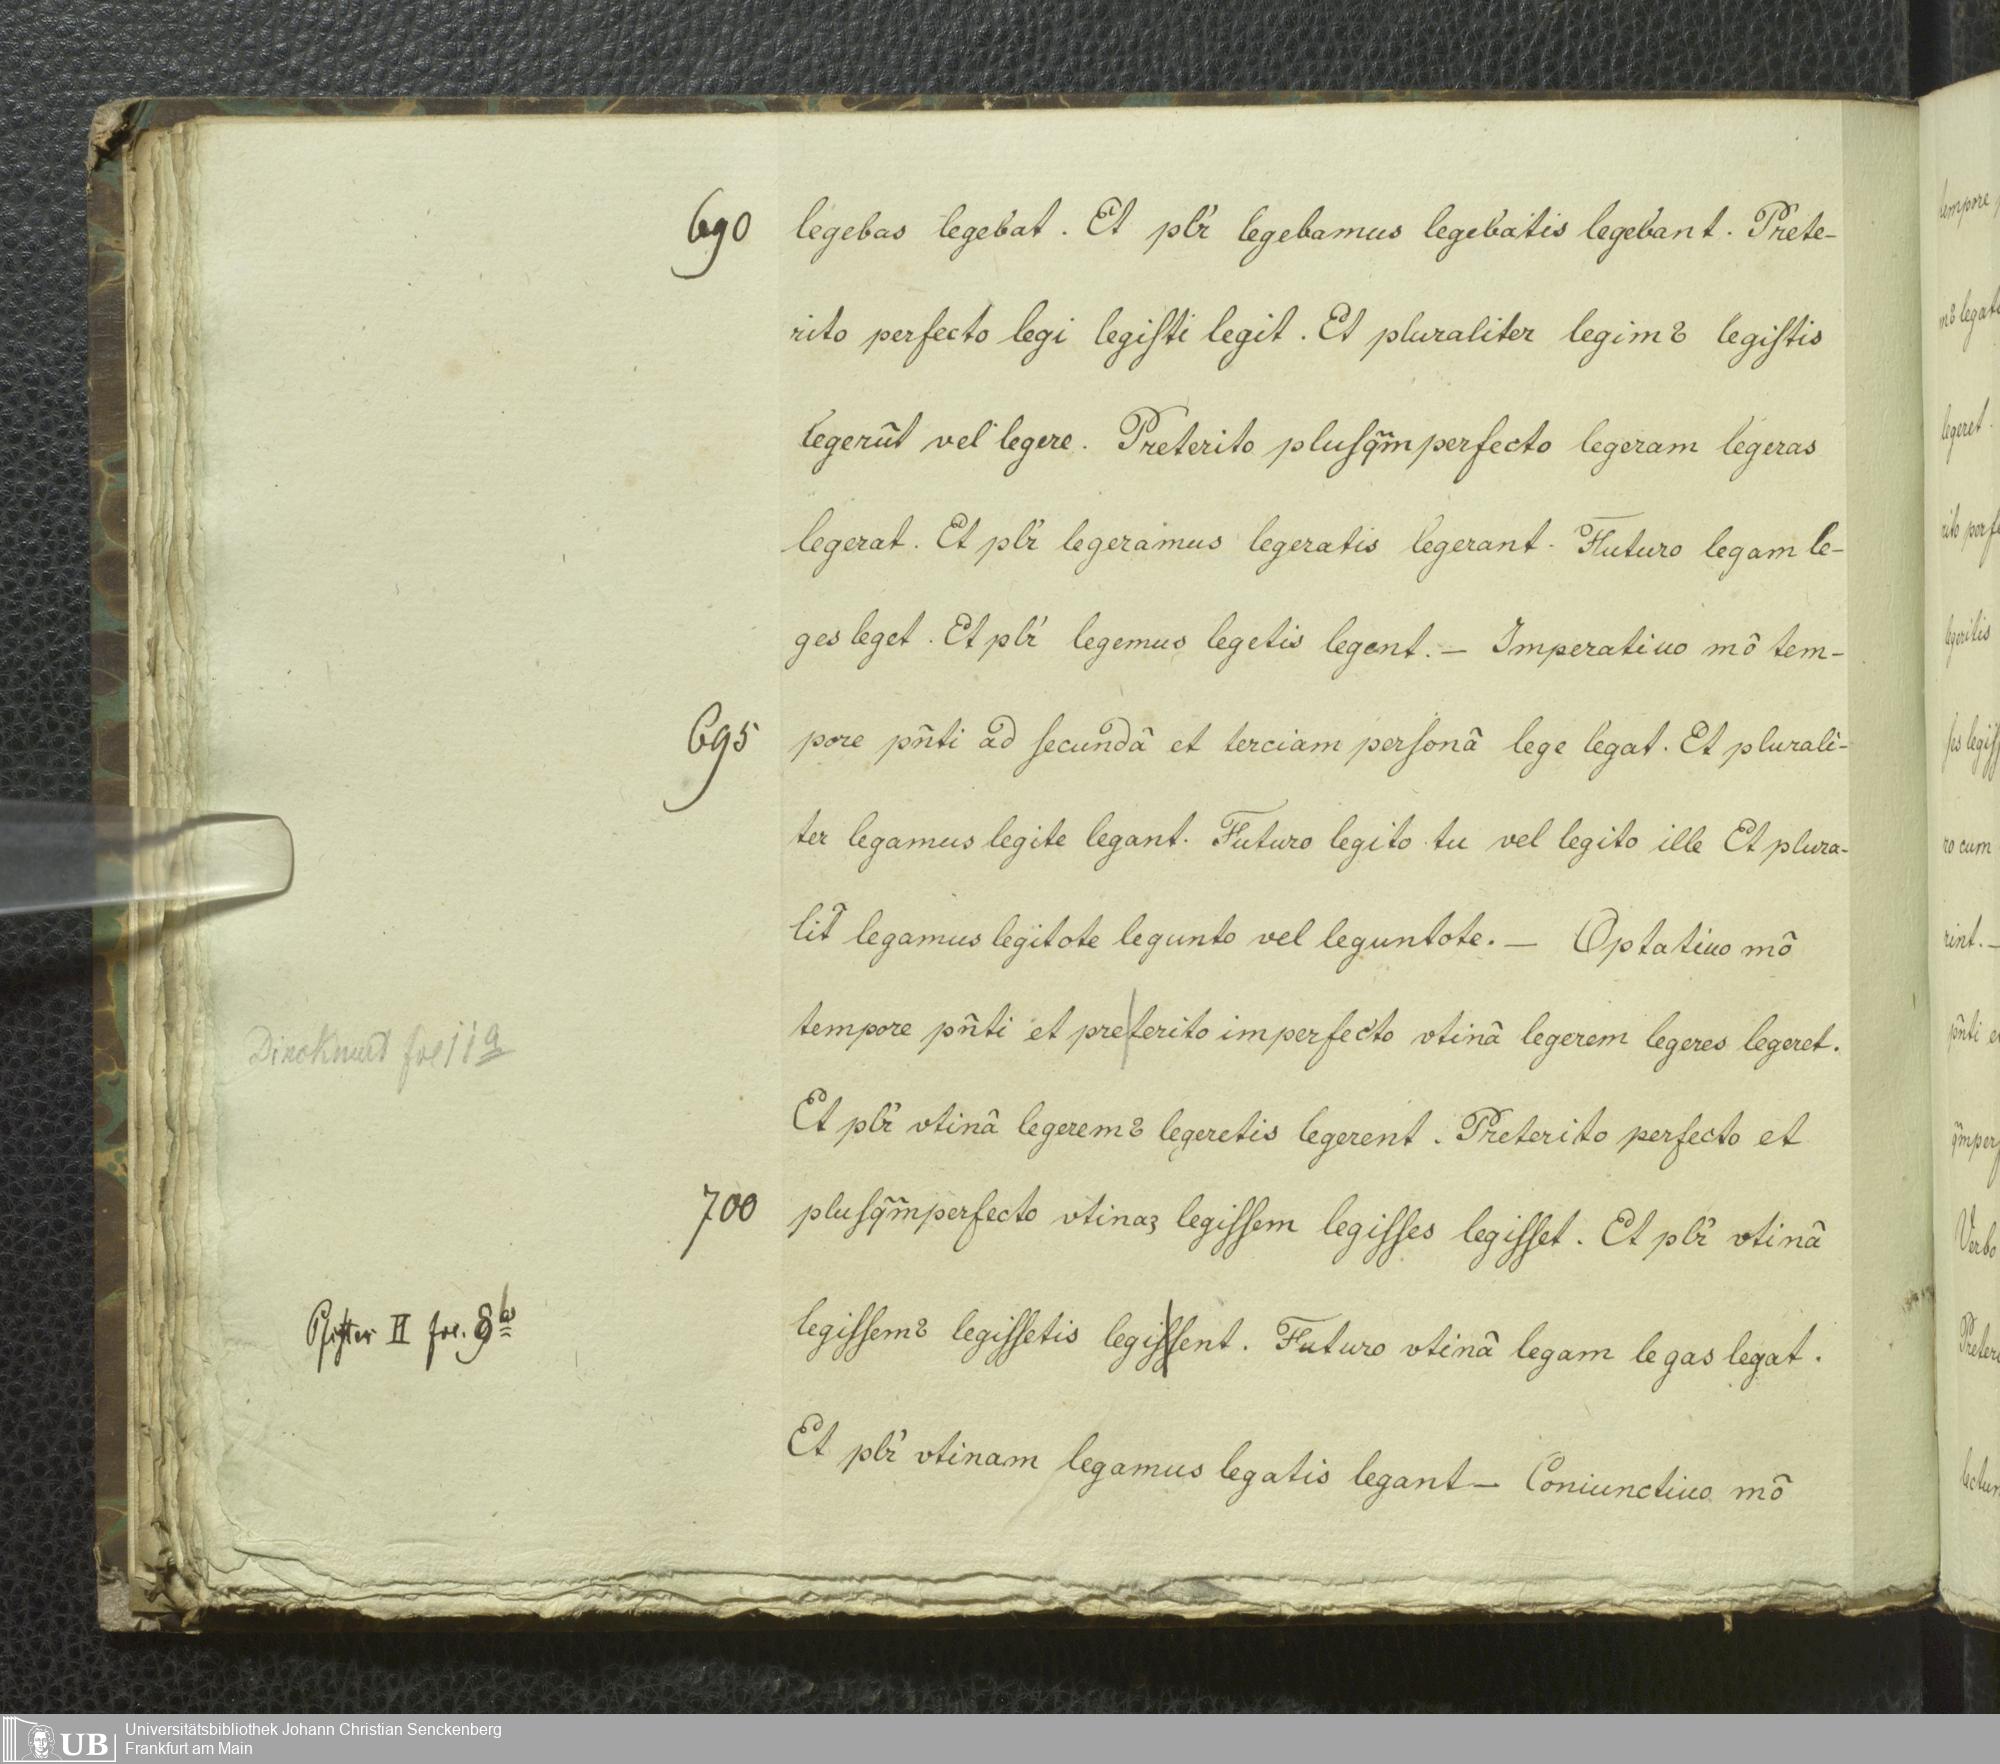 690 legebas legebat. Et plr̄ legebamus legebatis legebant. Prete-
rito perfecto legi legiſti legit. Et pluraliter legimꝰ legiſtis
legerūt vel legere. Preterito pluſq̄m̄perfecto legeram legeras
legerat. Et plr̄ legeramus legeratis legerant. Futuro legam le-
ges leget. Et plr̄ legemus legetis legent.— Imperatiuo mō tem-
695 pore pn̄ti ad ſecundā et terciam perſonā lege legat. Et plurali-
ter legamus legite legant. Futuro legito tu vel legito ille Et plura-
lit̄ legamus legitote legunto vel leguntote.— Optatiuo mō
tempore pn̄ti et preterito imperfecto vtinā legerem legeres legeret.
Et plr̄ vtinā legeremꝰ legeretis legerent. Preterito perfecto et
700 pluſq̄m̄perfecto vtinaꝫ legiſſem legiſſes legiſſet. Et plr̄ vtinā
legiſſemꝰ legiſſetis legiſſent. Futuro vtinā legam legas legat.
Et plr̄ vtinam legamus legatis legant— Coniunctiuo mō
fol 11a
Pfister II fol. 8b
tempore
mꝰ legat
legeret.
rito perfe
legeritis
ſes legiſſ
ro cum
rint.—
pn̄ti e
q̄m̄perf
Verbo
Preter
lectur
Universitätsbibliothek Johann Christian Senckenberg
UB Frankfurt am Main